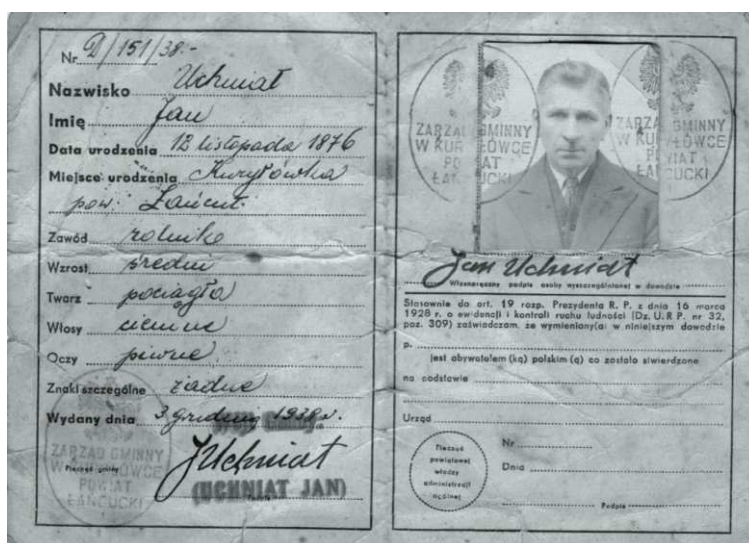 Nr. D/151/38.-
Nazwisko Uchniat
Imię Jan
Data urodzenia 12 listopada 1876
Miejsce urodzenia Kuryłówka
pow. Łańcut.
Zawód rolnik
Wzrost średni
Twarz pociągła
Włosy ciemne
Oczy piwne
Znaki szczególne żadne
Wydany dnia 3 grudnia 1938 r.
Wójt Gminy.
ZARZĄD GMINNY
W KURYŁÓWCE
POWIAT
ŁAŃCUCKI
Pieczęć gminy
JUchniat
(UCHNIAT JAN)
Podpis
ZARZĄD GMINNY
W KURYŁÓWCE
POWIAT
ŁAŃCUCKI
ZARZĄD GMINNY
W KURYŁÓWCE
POWIAT
ŁAŃCUCKI
Jan Uchniat
Własnoręczny podpis osoby wyszczególnionej w dowodzie
Stosownie do art. 19 rozp. Prezydenta R. P. z dnia 16 marca
1928 r. o ewidencji i kontroli ruchu ludności (Dz. U. R. P. nr 32,
poz. 309) zaświadczam, że wymieniony(a) w niniejszym dowodzie
p.
jest obywatelem (ką) polskim (ą) co zostało stwierdzone
na podstawie
Urząd
Pieczęć
powiatowej
władzy
administracji
ogólnej
Nr
Dnia
Podpis